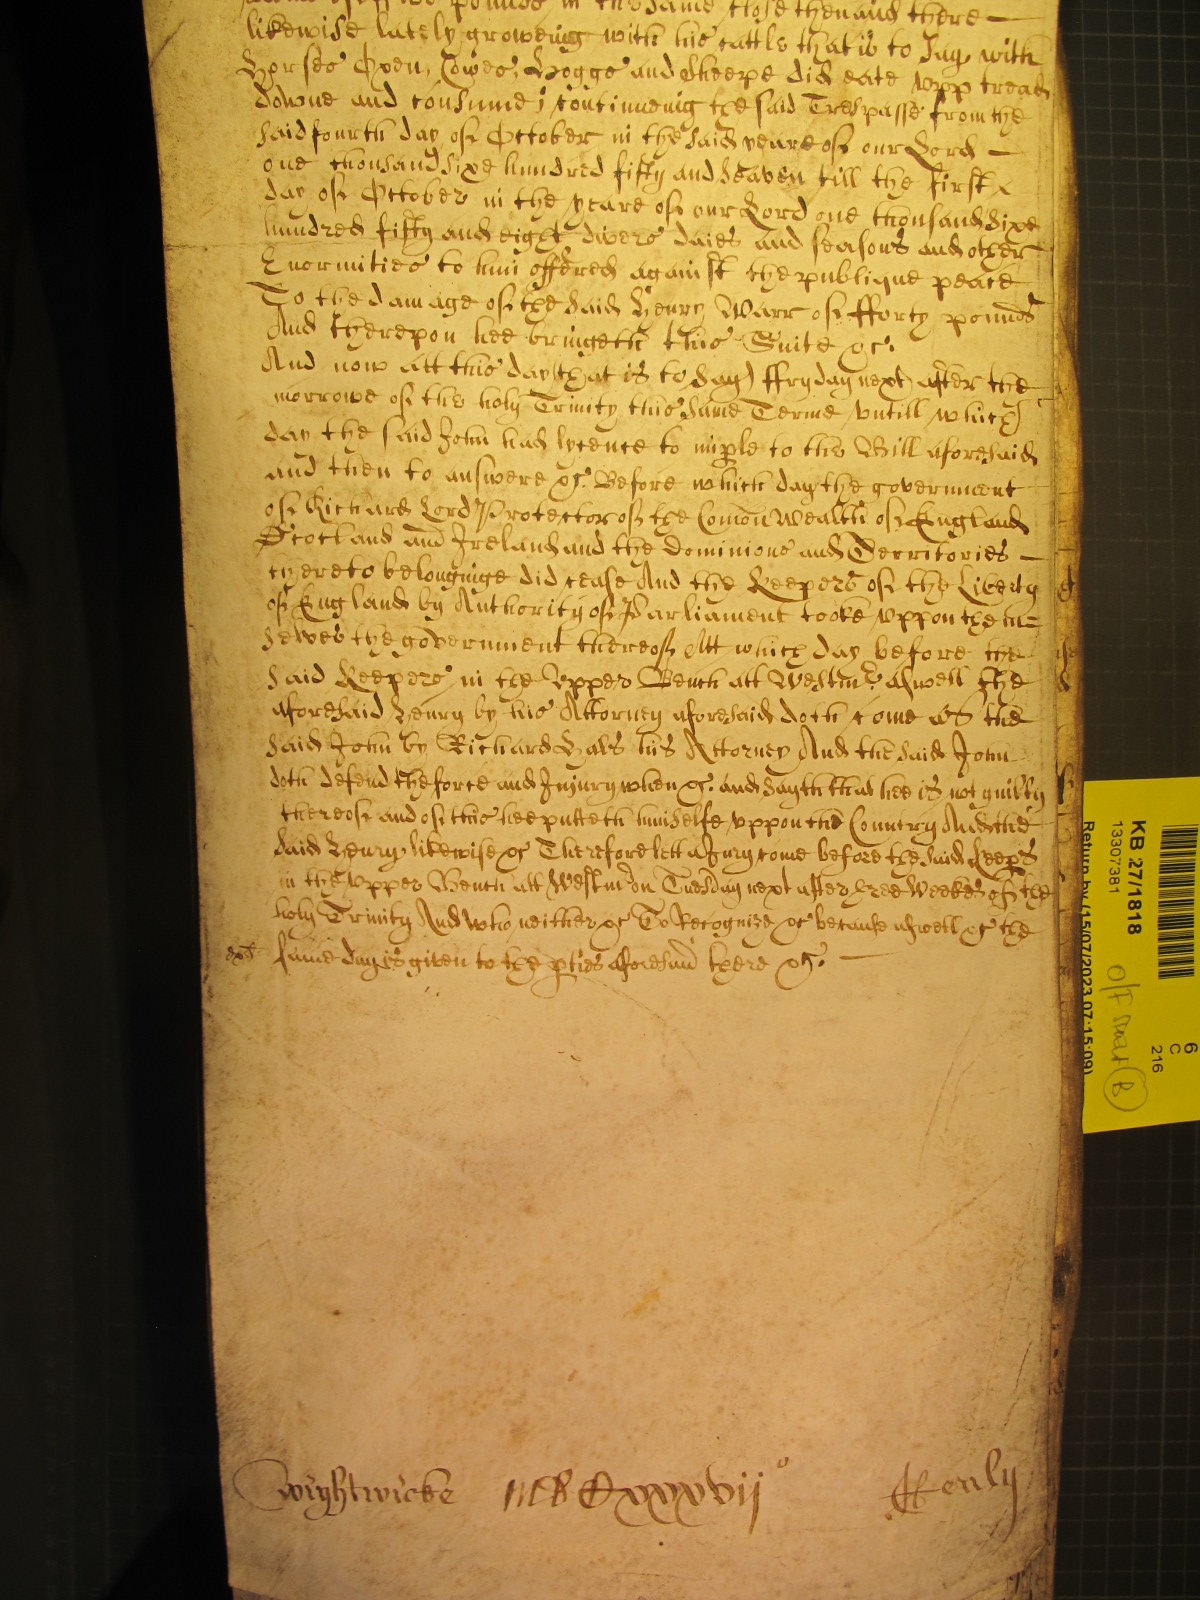 pounds in the same close then and there —
likewise lately groweing with his cattle that is to say with
Horses Oxen, Cowes, Hoggs and Sheepe did eate upp tread
downe and consume; continueing the said Trespasse from the
said fourth day of October in the said yeare of our Lord —
one thousand sixe hundred fifty and seaven till the first
day of October in the yeare of our Lord one thousand sixe
hundred fifty and eight divers daies and seasons and other
Enormities to him offered against the publique peace
To the damage of the said Henry Warr of fforty pounds
And therepon hee bringeth this Suite &c.
And now att this day (that is to say) ffryday next after the
morrowe of the holy Trinity this same Terme untill which
day the said John had lycence to imple to the Bill aforesaid
and then to answere &c. Before which day the government
of Richard Lord Protector of the Comon Wealth of England
Scotland and Ireland and the dominions and Territories —
thereto belonginge did cease And the Keepers of the Liberty
of England by Authority of Parliament tooke uppon them=
selves the government thereof Att which day before the
said Keepers in the Upper Bench att Westmr. aswell the
aforesaid Henry by his Attorney aforesaid doth come as the
said John by Richard Hals his Attorney And the said John
doth defend the force and Injury when &c. and sayth that hee is not guilty
thereof and of this hee putteth himselfe uppon the Country And the
said Henry likewise &c Therefore lett a Jury come before the said Keeps
in the Upper Bench att Westmr on Tuesday next after three Weekes of the
holy Trinity And who neither &c To Recognize &c because aswell &c the
same day is given to the pties aforesaid there &c. —
Wightwicke MCCCCxxxvijo Henly
KB 27/1818
13307381
Return by (15/07/2023 07:15:09)
6
C
216
off mat B